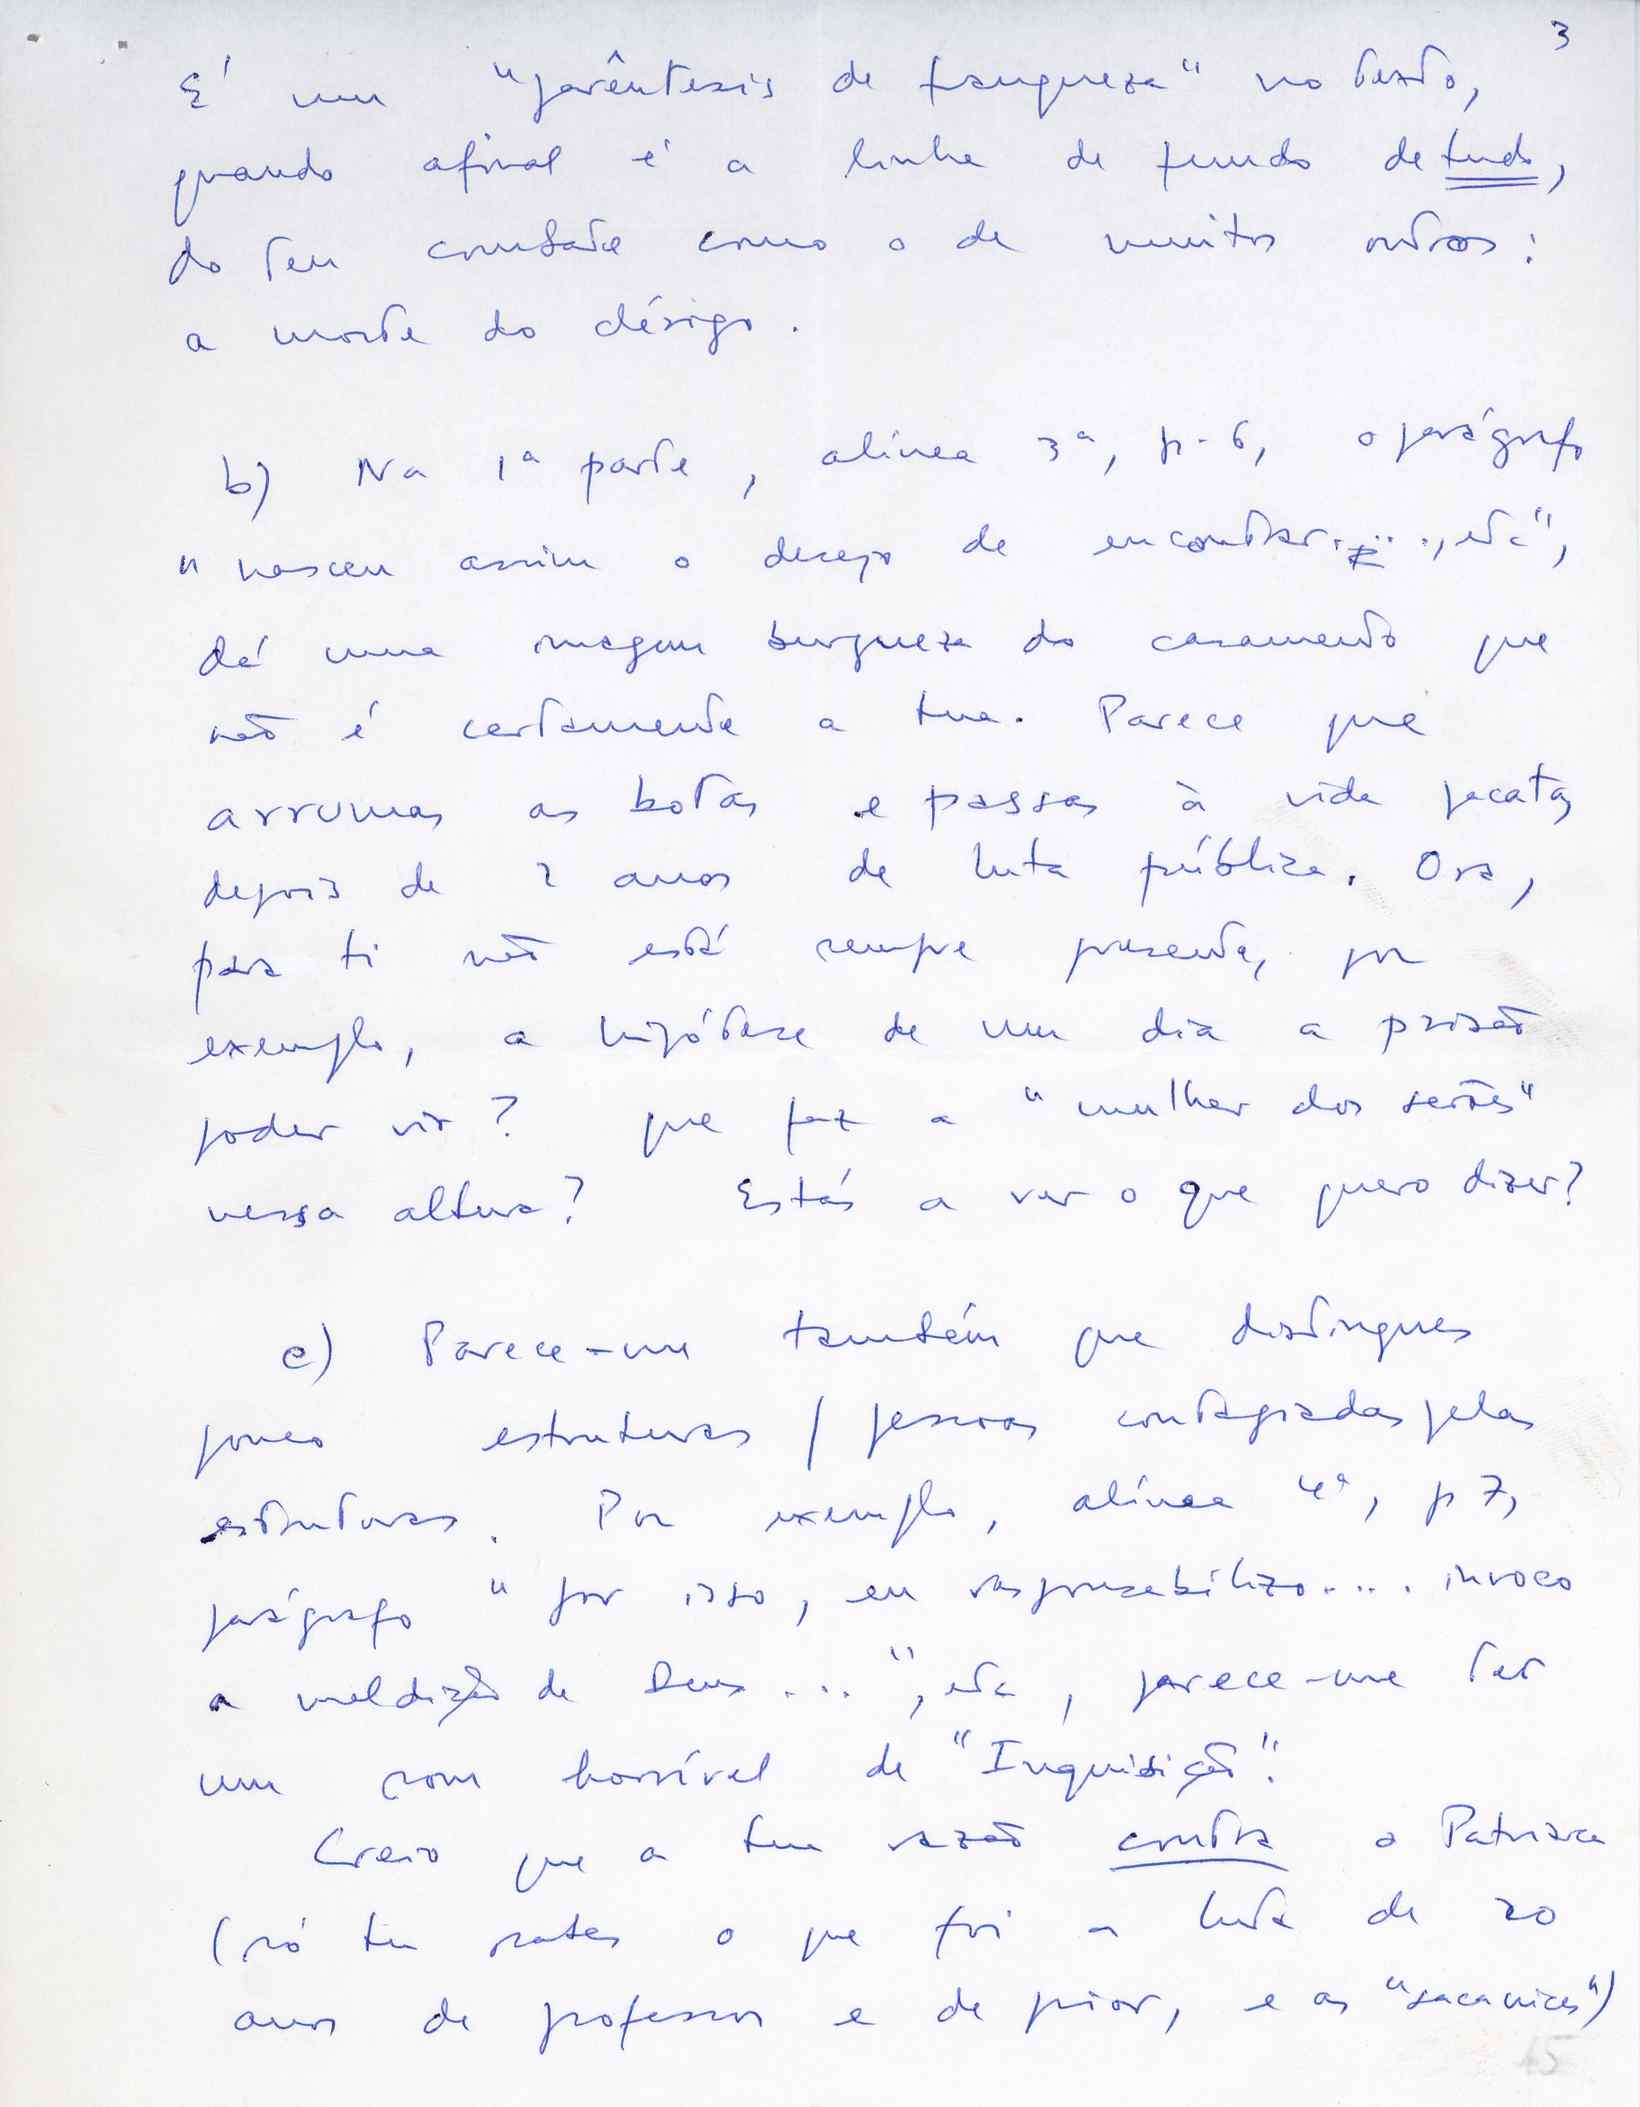 3
É um "parêntesis de franqueza" no texto,
quando afinal é a linha de fundo de tudo,
do teu combate como o de muitos outros:
a morte do clérigo.
b) Na 1ª parte, alínea 3ª, p. 6, o parágrafo
"nasceu assim o desejo de encontrar...., etc",
dá uma imagem burgueza do casamento que
não é certamente a tua. Parece que
arrumas as botas e passas à vida pacata,
depois de 2 anos de luta pública. Ora,
para ti não está sempre presente, por
exemplo, a hipótese de um dia a prisão
poder vir? que faz a "mulher dos serões"
nessa altura? Estás a ver o que quero dizer?
c) Parece-me também que distingues
pouco estruturas / pessoas contagiadas pelas
estruturas. Por exemplo, alínea 4ª, p 7,
parágrafo "por isso, eu responsabilizo.... invoco
a maldição de Deus ...", etc, parece-me ter
um som horrível de "Inquisição".
Creio que a tua razão contra o Patriarca
(só tu sabes o que foi a luta de 20
anos de professor e de prior, e as "sacanices")
15